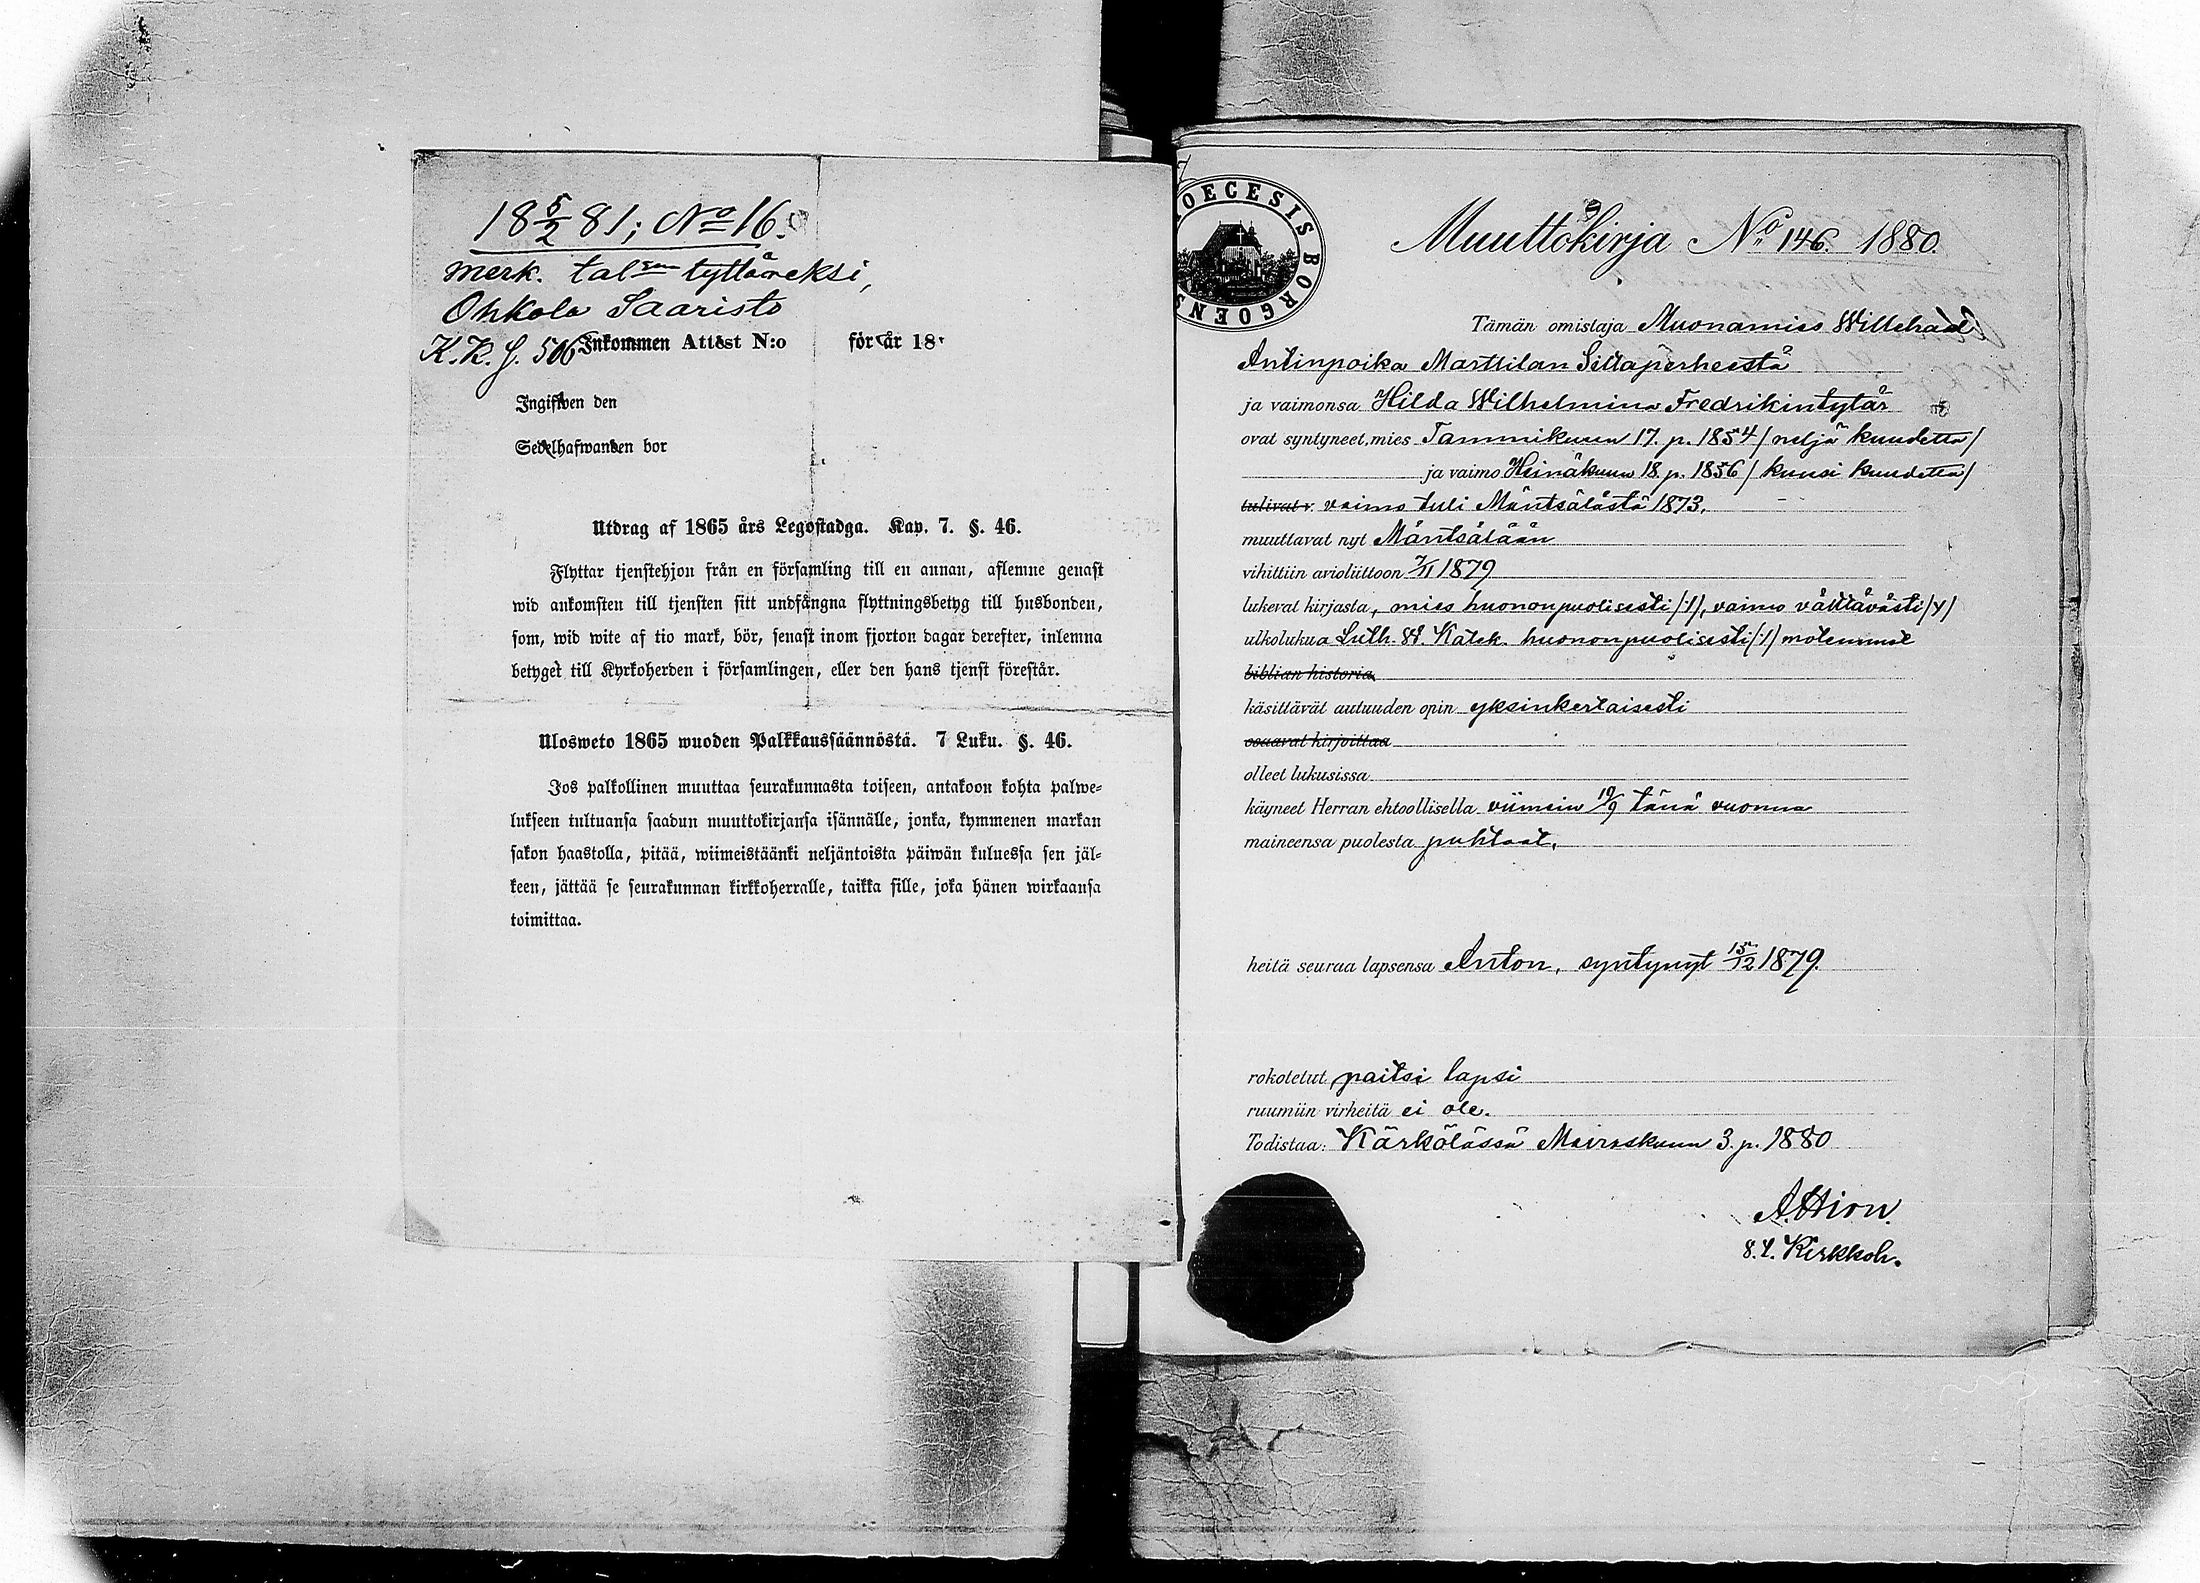 18 5/2 81; No 16.
merk. tal en tyttäreksi,
Ohkola Saaristo
K. K. S. 506
Inkommen Attest N:o för år 18
Ingifwen den
Sedelhafwanden bor
Utdrag af 1865 års Legostadga. Kap. 7. §. 46.
Flyttar tjenstehjon från en församling till en annan, aflemne genast
wid ankomsten till tjensten sitt undfångna flyttningsbetyg till husbonden,
som, wid wite af tio mark, bör, senast inom fjorton dagar derefter, inlemna
betyget till Kyrkoherden i församlingen, eller den hans tjenst förestår.
Ulosweto 1865 wuoden Palkkaussäännöstä. 7 Luku. §. 46.
Jos palkollinen muuttaa seurakunnasta toiseen, antakoon kohta palwe-
lukseen tultuansa saadun muuttokirjansa isännälle, jonka, kymmenen markan
sakon haastolla, pitää, wiimeistäänki neljäntoista päiwän kuluessa sen jäl-
keen, jättää se seurakunnan kirkkoherralle, taikka sille, joka hänen wirkaansa
toimittaa.
DIOECESIS BORGOENS
Muuttokirja No 146. 1880.
Tämän omistaja Muonamies Willehad
Antinpoika Marttilan Siltaperheestä
ja vaimonsa Hilda Wilhelmina Fredrikintytär
ovat syntyneet, mies Tammikuun 17. p. 1854 / neljä kuudetta /
ja vaimo Heinäkuun 18. p. 1856 / kuusi kuudetta /
tulivat v. vaimo tuli Mäntsälästä 1873.
muuttavat nyt Mäntsälään
vihittiin avioliittoon 7/11 1879
lukevat kirjasta, mies huononpuolisesti /:/, vaimo välttävästi /y/
ulkolukua Luth. W. Katek. huononpuolisesti /:/ molemmat
biblian historia
käsittävät autuuden opin yksinkertaisesti
osaavat kirjoittaa
olleet lukusissa
käyneet Herran ehtoollisella viimein 19/9 tänä vuonna
maineensa puolesta puhtaat.
heitä seuraa lapsensa Anton, syntynyt 15/12 1879.
rokotetut paitsi lapsi
ruumiin virheitä ei ole.
Todistaa: Kärkölässä Marraskuun 3. p. 1880
A. Hirn.
Kirkkoh.